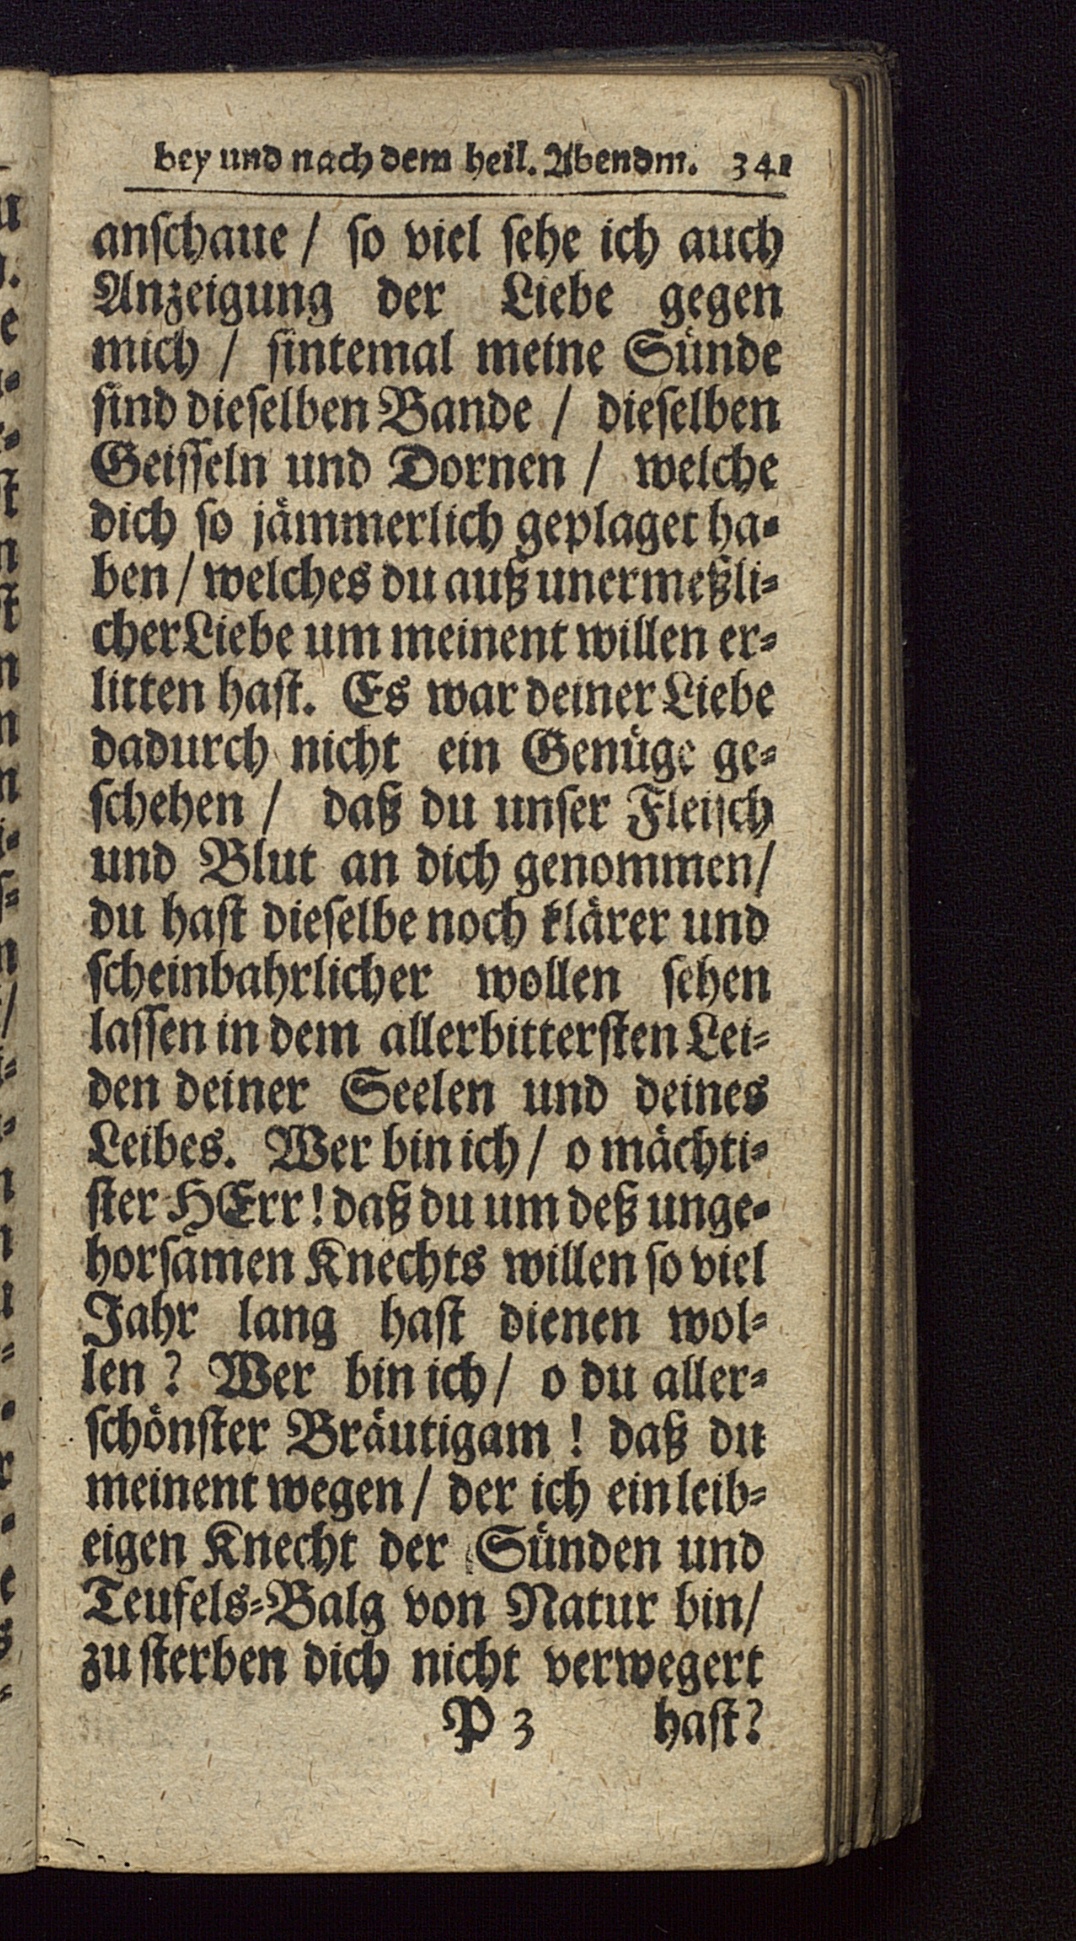 bey und nach dem heil. Abendm. 341
anschaue / so viel sehe ich auch
Anzeigung der Liebe gegen
mich / sintemal meine Sünde
sind dieselben Bande / dieselben
Geisseln und Dornen / welche
dich so jämmerlich geplaget ha-
ben / welches du auß unermeßli-
cher Liebe um meinent willen er-
litten hast. Es war deiner Liebe
dadurch nicht ein Genüge ge-
schehen / daß du unser Fleisch
und Blut an dich genommen /
du hast dieselbe noch klärer und
scheinbahrlicher wollen sehen
lassen in dem allerbittersten Lei-
den deiner Seelen und deines
Leibes. Wer bin ich / o mächti-
ster HErr! daß du um deß unge-
horsamen Knechts willen so viel
Jahr lang hast dienen wol-
len? Wer bin ich / o du aller-
schönster Bräutigam! daß du
meinent wegen / der ich ein leib-
eigen Knecht der Sünden und
Teufels-Balg von Natur bin /
zu sterben dich nicht verwegert
P 3 hast?